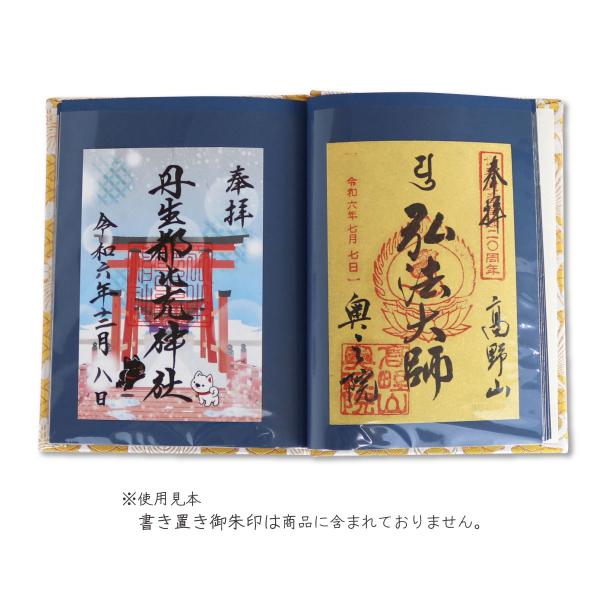 奉拝
丹生都比売神社
令和六年十二月八日
奉拝
二〇周年
高野山
弘法大師
奥之院
令和六年七月七日
※使用見本
書き置き御朱印は商品に含まれておりません。